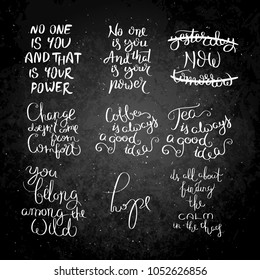 NO ONE
IS YOU
AND THAT
IS YOUR
POWER
No one
is you
And that
is your
power
yesterday
NOW
tomorrow
Change
doesn't come
from
Comfort
Coffee
is always
a good
idea
Tea is
always
a good
idea
you
belong
among the
Wild
hope
it's all about
finding
the
CALM
in the chaos
shutterstock
IMAGE ID: 1052626856
www.shutterstock.com